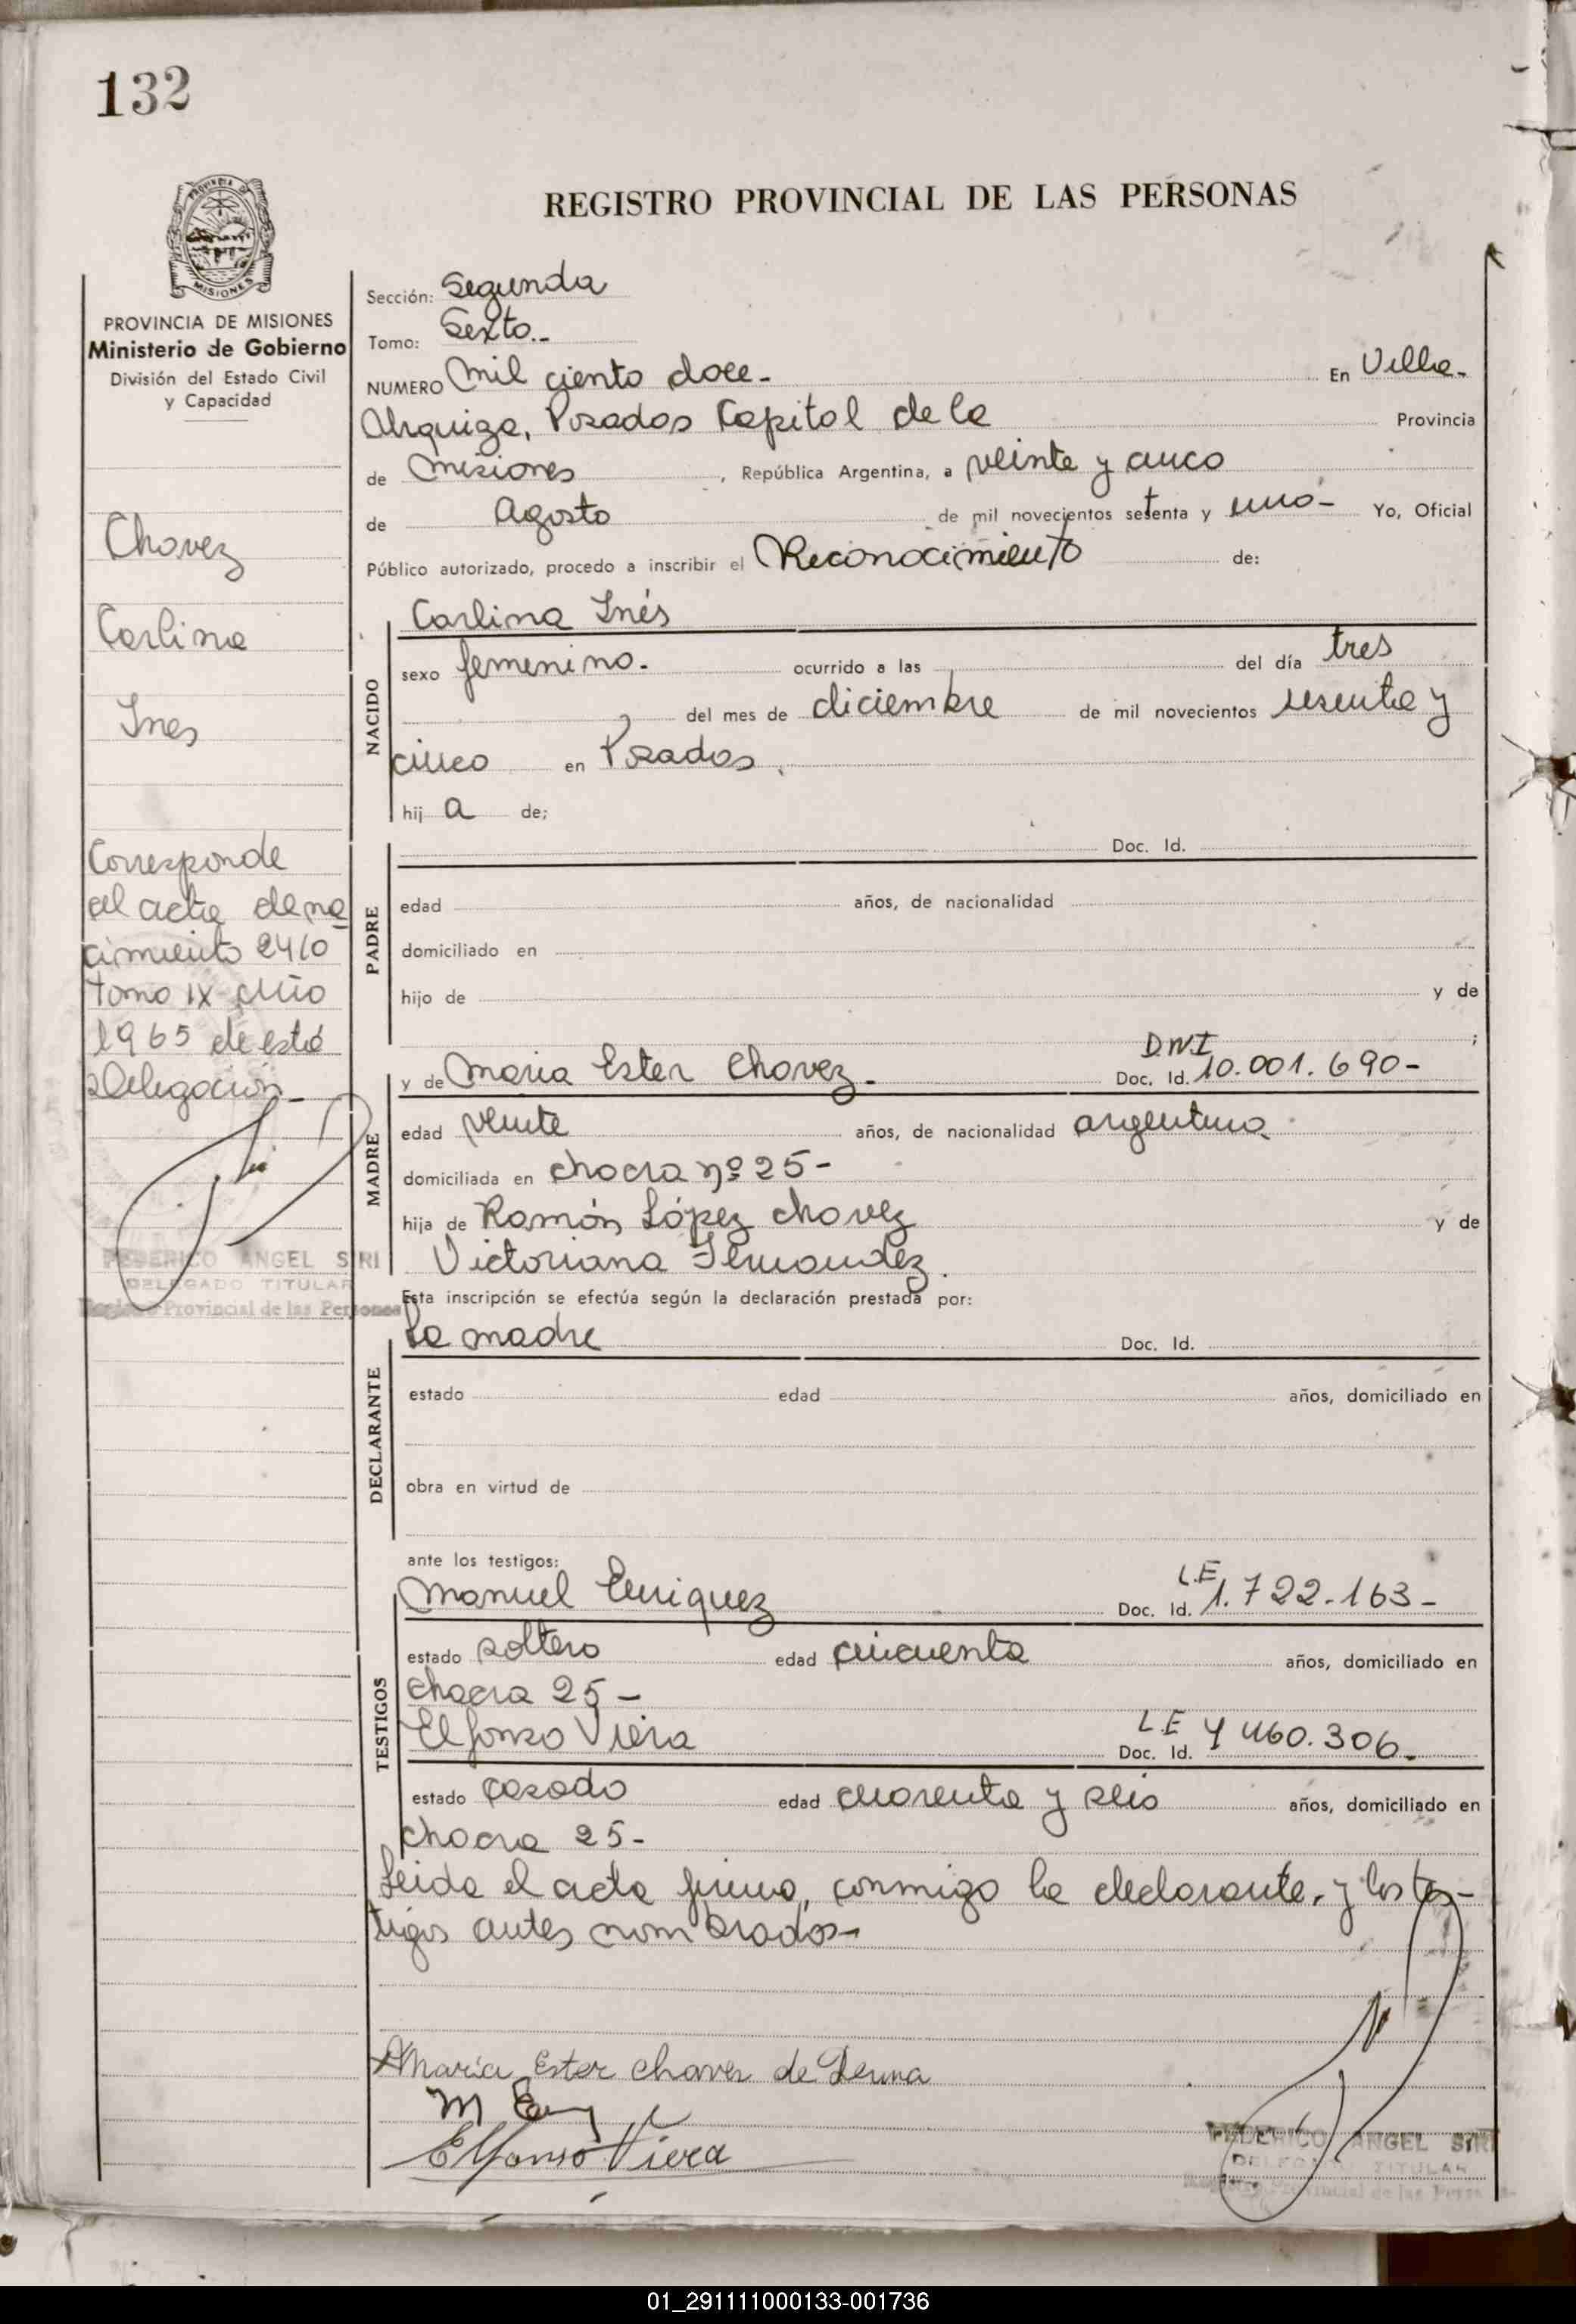 132
REGISTRO PROVINCIAL DE LAS PERSONAS
PROVINCIA DE MISIONES
MISIONES
PROVINCIA DE MISIONES
Ministerio de Gobierno
División del Estado Civil
y Capacidad
Chavez
Carlina
Ines
Corresponde
al acta de na
cimiento 2410
tomo IX año
1965 de esta
Delegación
FEDERICO ANGEL SIRI
DELEGADO TITULAR
Registro Provincial de las Personas
Sección: Segunda
Tomo: Sexto.-
NUMERO Mil ciento doce - En Villa-
Urquiza, Posadas Capital de la Provincia
de Misiones, República Argentina, a veinte y cinco
de Agosto de mil novecientos setenta y uno- Yo, Oficial
Público autorizado, procedo a inscribir el Reconocimiento de:
NACIDO
Carlina Inés
sexo femenino. ocurrido a las del día tres
del mes de diciembre de mil novecientos sesenta y
cinco en Posadas.
hij a de;
PADRE
Doc. Id.
edad años, de nacionalidad
domiciliado en
hijo de y de
;
MADRE
D.N.I
y de Maria Ester Chavez - Doc. Id. 10.001.690-
edad veinte años, de nacionalidad argentina
domiciliada en chacra nº 25-
hija de Ramón López Chavez y de
Victoriana Fernandez.
Esta inscripción se efectúa según la declaración prestada por:
DECLARANTE
La madre Doc. Id.
estado edad años, domiciliado en
obra en virtud de
ante los testigos:
TESTIGOS
L.E
Manuel Enriquez Doc. Id. 1.722.163-
estado soltero edad cincuenta años, domiciliado en
chacra 25-
L.E
Elfonso Viera Doc. Id. 7460.306.
estado casado edad cuarenta y seis años, domiciliado en
chacra 25-
Leida el acta firma, conmigo la declarante, y los tes-
tigos antes nombrados-
Maria Ester chavez de
Elfonso Viera
FEDERICO ANGEL SIRI
DELEGADO TITULAR
Registro Provincial de las Personas
01_291111000133-001736